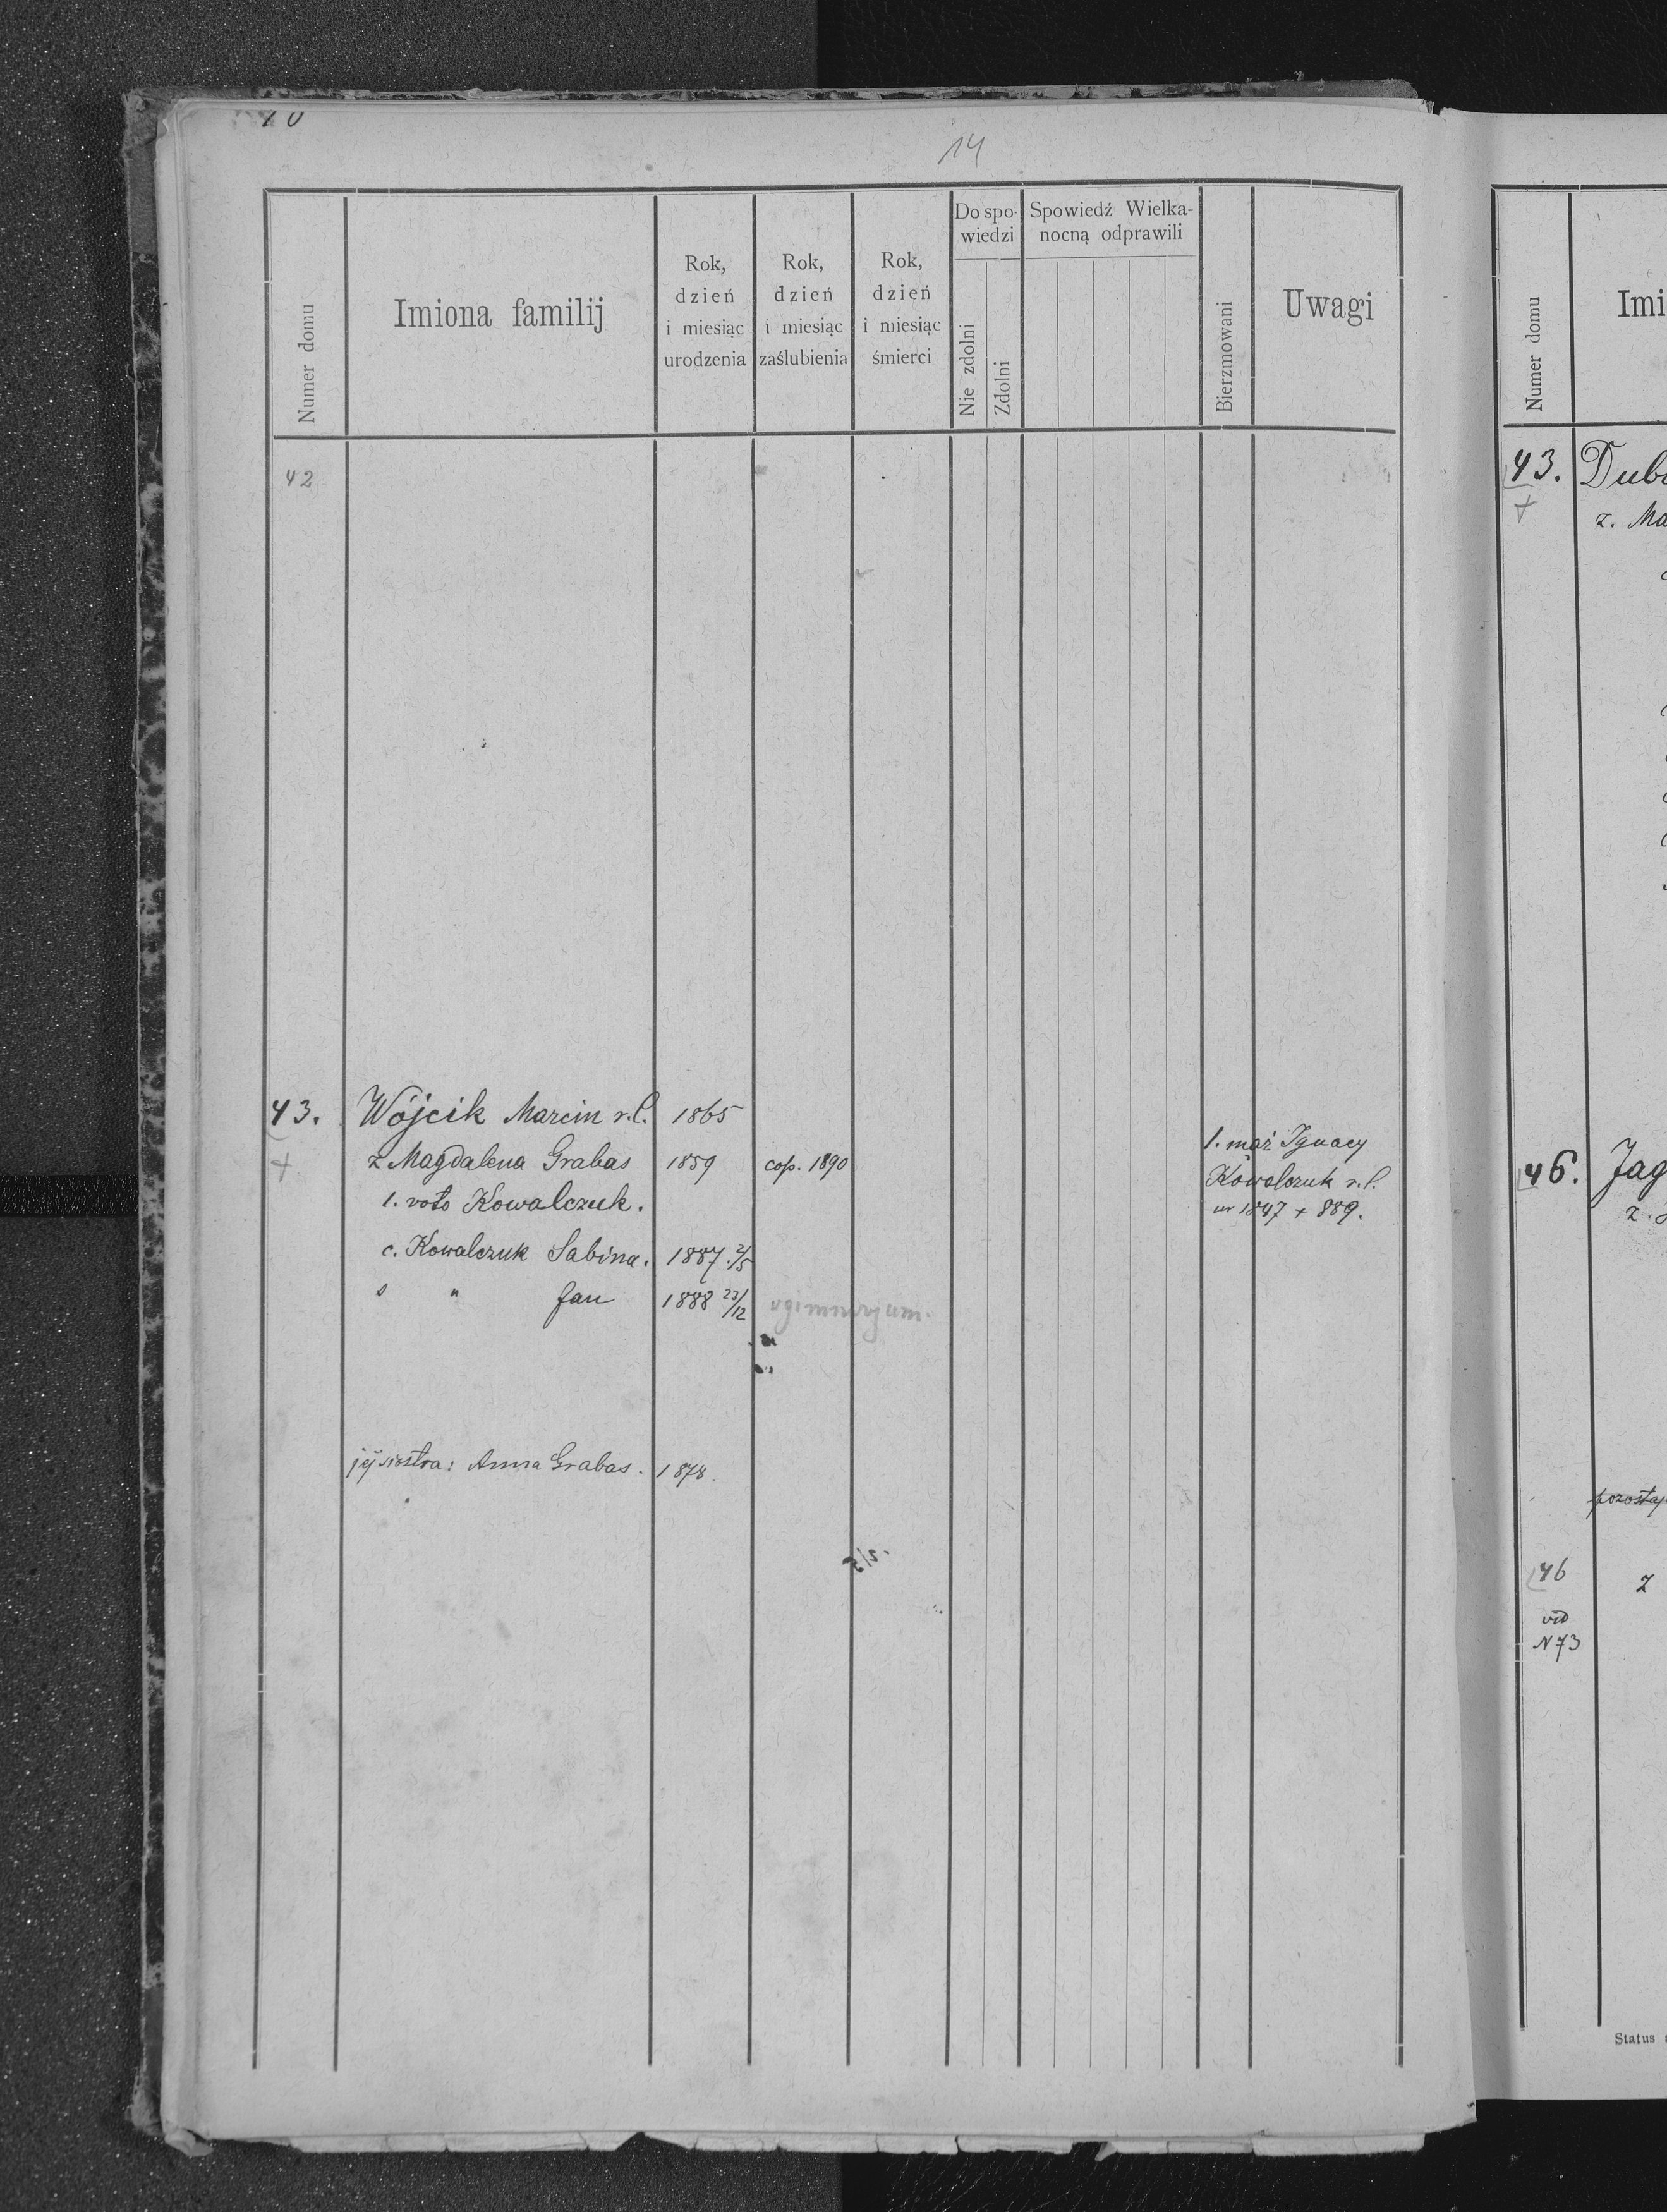 14
Numer domu
Imiona familij
Rok,
dzień
i miesiąc
urodzenia
Rok,
dzień
i miesiąc
zaślubienia
Rok,
dzień
i miesiąc
śmierci
Do spo-
wiedzi
Nie zdolni
Zdolni
Spowiedź Wielka-
nocną odprawili
Bierzmowani
Uwagi
42
43. Wójcik Marcin r.l. 1865
+ z Magdalena Grabas 1859 cop. 1890
1. voto Kowalczuk.
c. Kowalczuk Sabina. 1887 2/5
s " Jan 1888 23/12
jej siostra: Anna Grabas. 1878.
1. mąż Ignacy
Kowalczuk r.l.
ur 1847 + 889.
2/5
Numer domu
Imi
43. Dub
+ z. Ma
46. Jag
z.
46 z
vid
N 73
Status